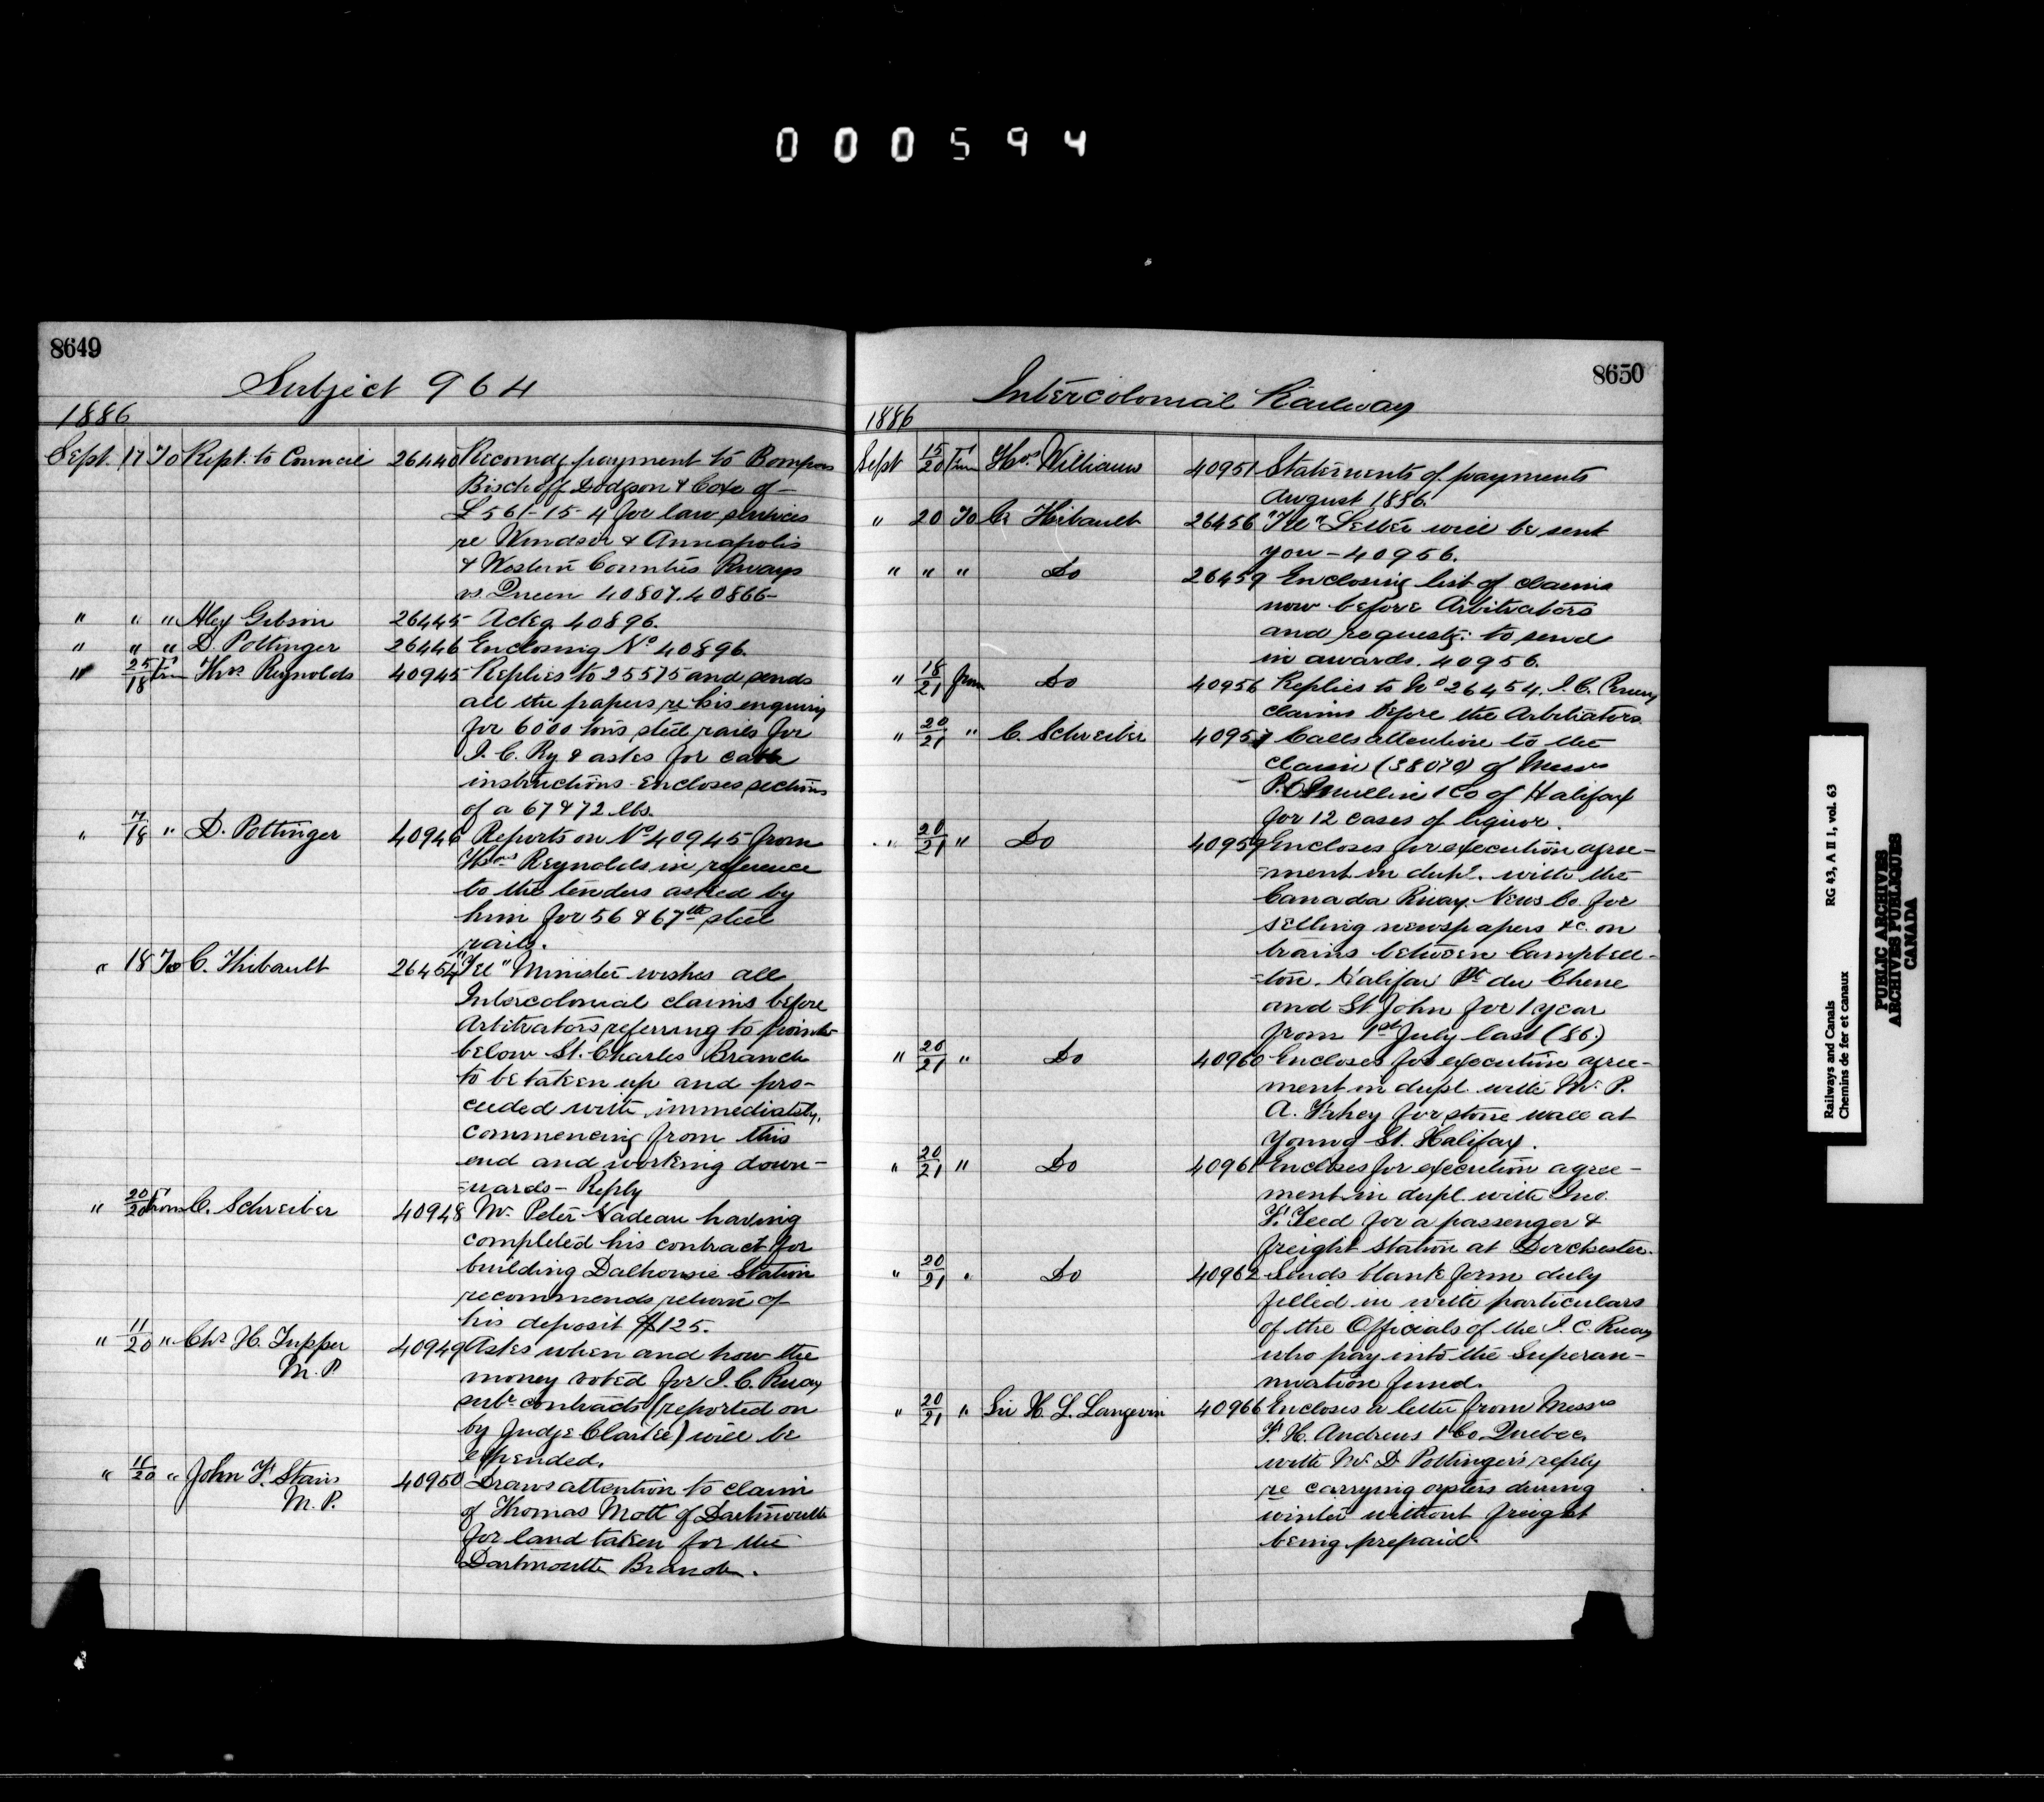 000594
8649
Subject 964
1886
Sept. 17 To Rept. to Council 26440 Recomdg payment to Bompas
Bischoff Dodgson & Coxe of
£561-15-4 for law services
re Windsor & Annapolis
& Western Counties Rways
vs. Queen 40807. 40866-
" " " Alex Gibson 26445 Ackg. 40896.
" " " D. Pottinger 26446 Enclosing No 40896.
" 25/18 Frm Thos Reynolds 40945 Replies to 25575 and sends
all the papers re his enquiry
for 6000 tons steel rails for
I. C. Ry & asks for cable
instructions - Encloses sections
of a 67 & 72 lbs.
" 7/18 " D. Pottinger 40946 Reports on No 40945 from
Thos Reynolds in reference
to the tenders asked by
him for 56 & 67 lb steel
rails.
" 18 To C. Thibault 26454 "Tel" Minister wishes all
Intercolonial claims before
Arbitrators referring to points
below St. Charles Branch
to be taken up and pro-
ceeded with immediately,
commencing from this
end and working down-
=wards - Reply
" 20/20 From C. Schreiber 40948 Mr. Peter Nadeau having
completed his contract for
building Dalhousie Station
recommends return of
his deposit $125.
" 11/20 " Chs H. Tupper 40949 Asks when and how the
M. P. money voted for I. C. Rway
sub-contracts (reported on
by Judge Clarke) will be
expended.
" 11/20 " John F. Stairs 40950 Draws attention to claim
M. P. of Thomas Mott of Dartmouth
for land taken for the
Dartmouth Branch.
8650
Intercolonial Railway
1886
Sept 15/20 Frm Thos Williams 40951 Statements of payments
August 1886.
" 20 To C. Thibault 26456 "Tel" Letter will be sent
you - 40956.
" " " Do 26459 Enclosing list of claims
now before Arbitrators
and requestg: to send
in awards. 40956.
" 18/21 from Do 40956 Replies to No 26454. I. C. Rway
claims before the Arbitrators
" 20/21 " C. Schreiber 40957 Calls attention to the
claim (38070) of Messrs
P. O'Mullin & Co of Halifax
for 12 cases of liquor.
" 20/21 " Do 40959 Encloses for execution agree-
=ment in dupl. with the
Canada Rway. News Co. for
selling newspapers &c. on
trains between Campbell-
=ton. Halifax Pt du Chene
and St. John for 1 year
from 1st July last (86.)
" 20/21 " Do 40960 Encloses for execution agree-
ment in dupl. with Mr. P.
A. Fahey for stone wall at
Young St. Halifax.
" 20/21 " Do 40961 Encloses for execution agree-
ment in dupl. with Jno.
F. Teed for a passenger &
freight station at Dorchester.
" 20/21 " Do 40962 Sends blank form duly
filled in with particulars
of the Officials of the I. C. Rway
who pay into the Superan-
nuation fund.
" 20/21 " Sir H. L. Langevin 40966 Encloses a letter from Messrs
F. H. Andrews & Co. Quebec,
with Mr. D. Pottinger's reply
re carrying oysters during
winter without freight
being prepaid.
Railways and Canals RG 43, A II 1, vol. 63
Chemins de fer et canaux
PUBLIC ARCHIVES
ARCHIVES PUBLIQUES
CANADA